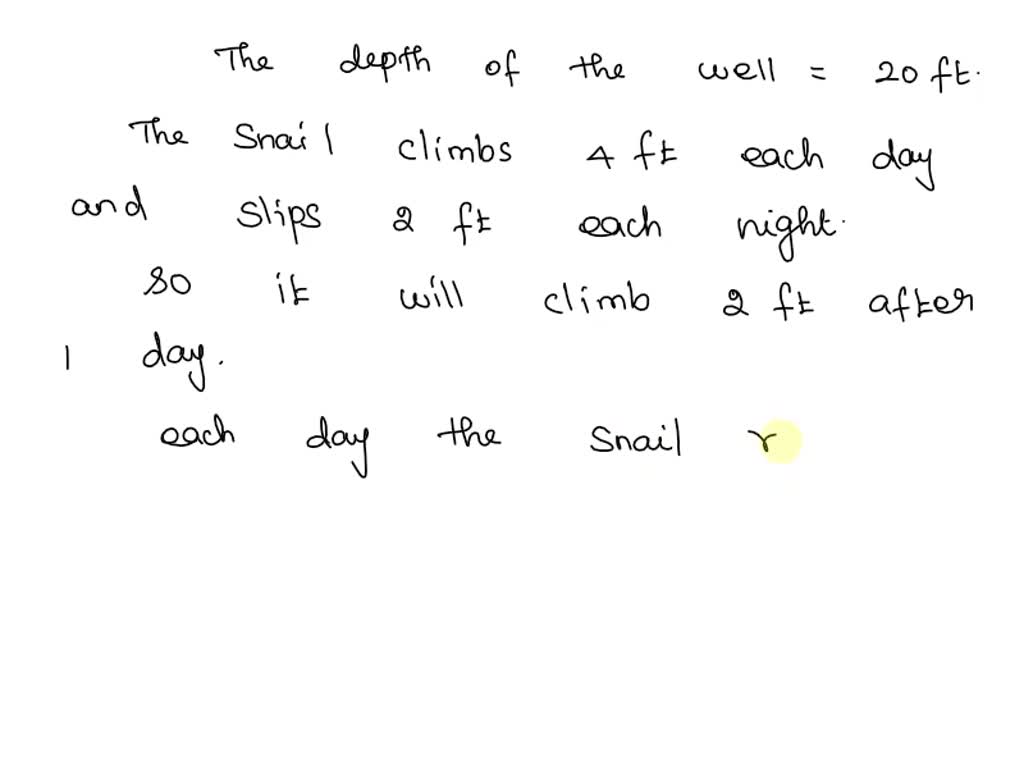 The depth of the well = 20 ft.
The Snail climbs 4 ft each day
and slips 2 ft each night.
so it will climb 2 ft after
1 day.
each day the snail r